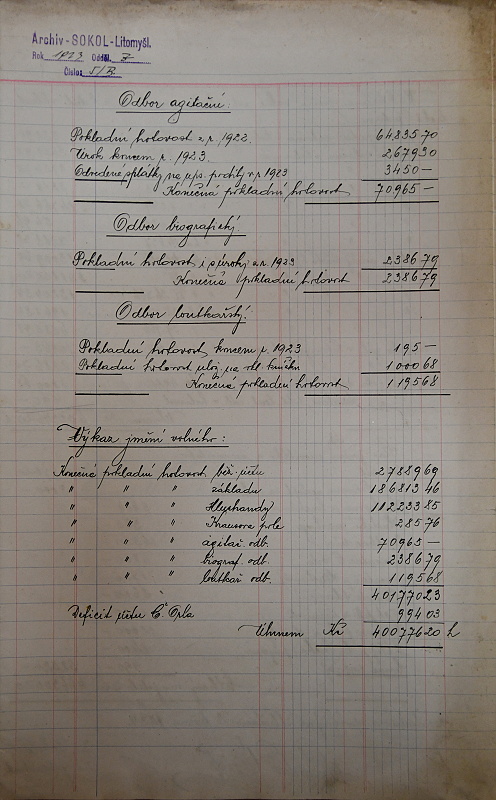 Archiv-SOKOL-Litomyšl.
Rok 1923 Odděl. F
Číslo: 5/B
Odbor agitační.
Pokladní hotovost z r. 1922. 6483570
Úrok koncem r. 1923. 267930
Odvedené splátky na ups. podíly v r. 1923 3450—
Konečná pokladní hotovost 70965—
Odbor biografický.
Pokladní hotovost i s úroky z r. 1923 238679
Konečná pokladní hotovost 238679
Odbor loutkářský.
Pokladní hotovost koncem r. 1923 195—
Pokladní hotovost ulož. na vkl. knížku 100068
Konečná pokladní hotovost 119568
Výkaz jmění volného:
Konečná pokladní hotovost běž. účtu 2788969
" " " základu 18681346
" " " 11223385
" " " Krausova pole 28576
" " " agitač. odb. 70965—
" " " biograf. odb. 238679
" " " loutkář. odb. 119568
40177023
Deficit účtu C. Orla 99403
Úhrnem Kč 40077620 h